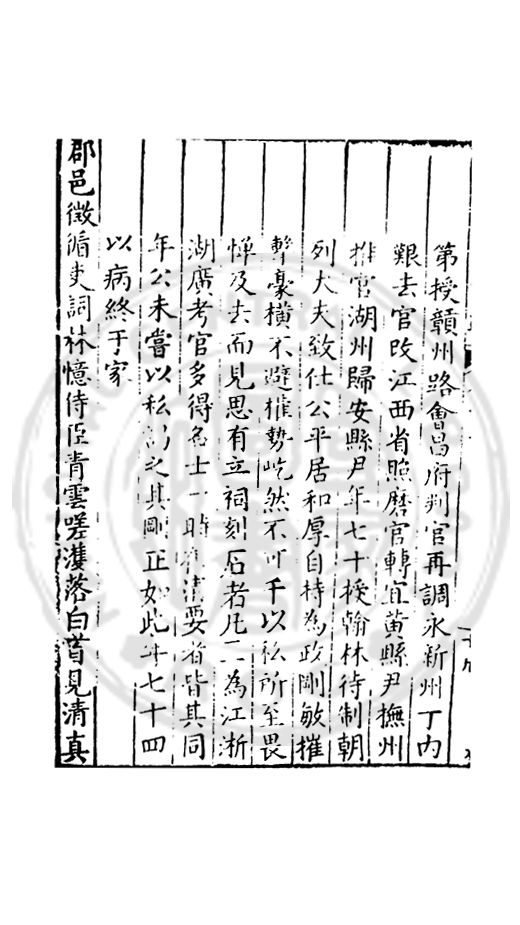 第授贛州路會昌府判官再調永新州丁內
艱去官改江西省照磨官轉宜黃縣尹撫州
推官湖州歸安縣尹年七十授翰林待制朝
列大夫致仕公平居和厚自持為政剛敏摧
擊豪橫不避權勢屹然不可干以私所至畏
憚及去而見思有立祠刻石者凡二為江浙
湖廣考官多得名士一時清要者皆其同
年公未嘗以私謁之其剛正如此年七十四
以病終于家
郡邑徵循吏詞林憶侍臣青雲嗟濩落白首見清真